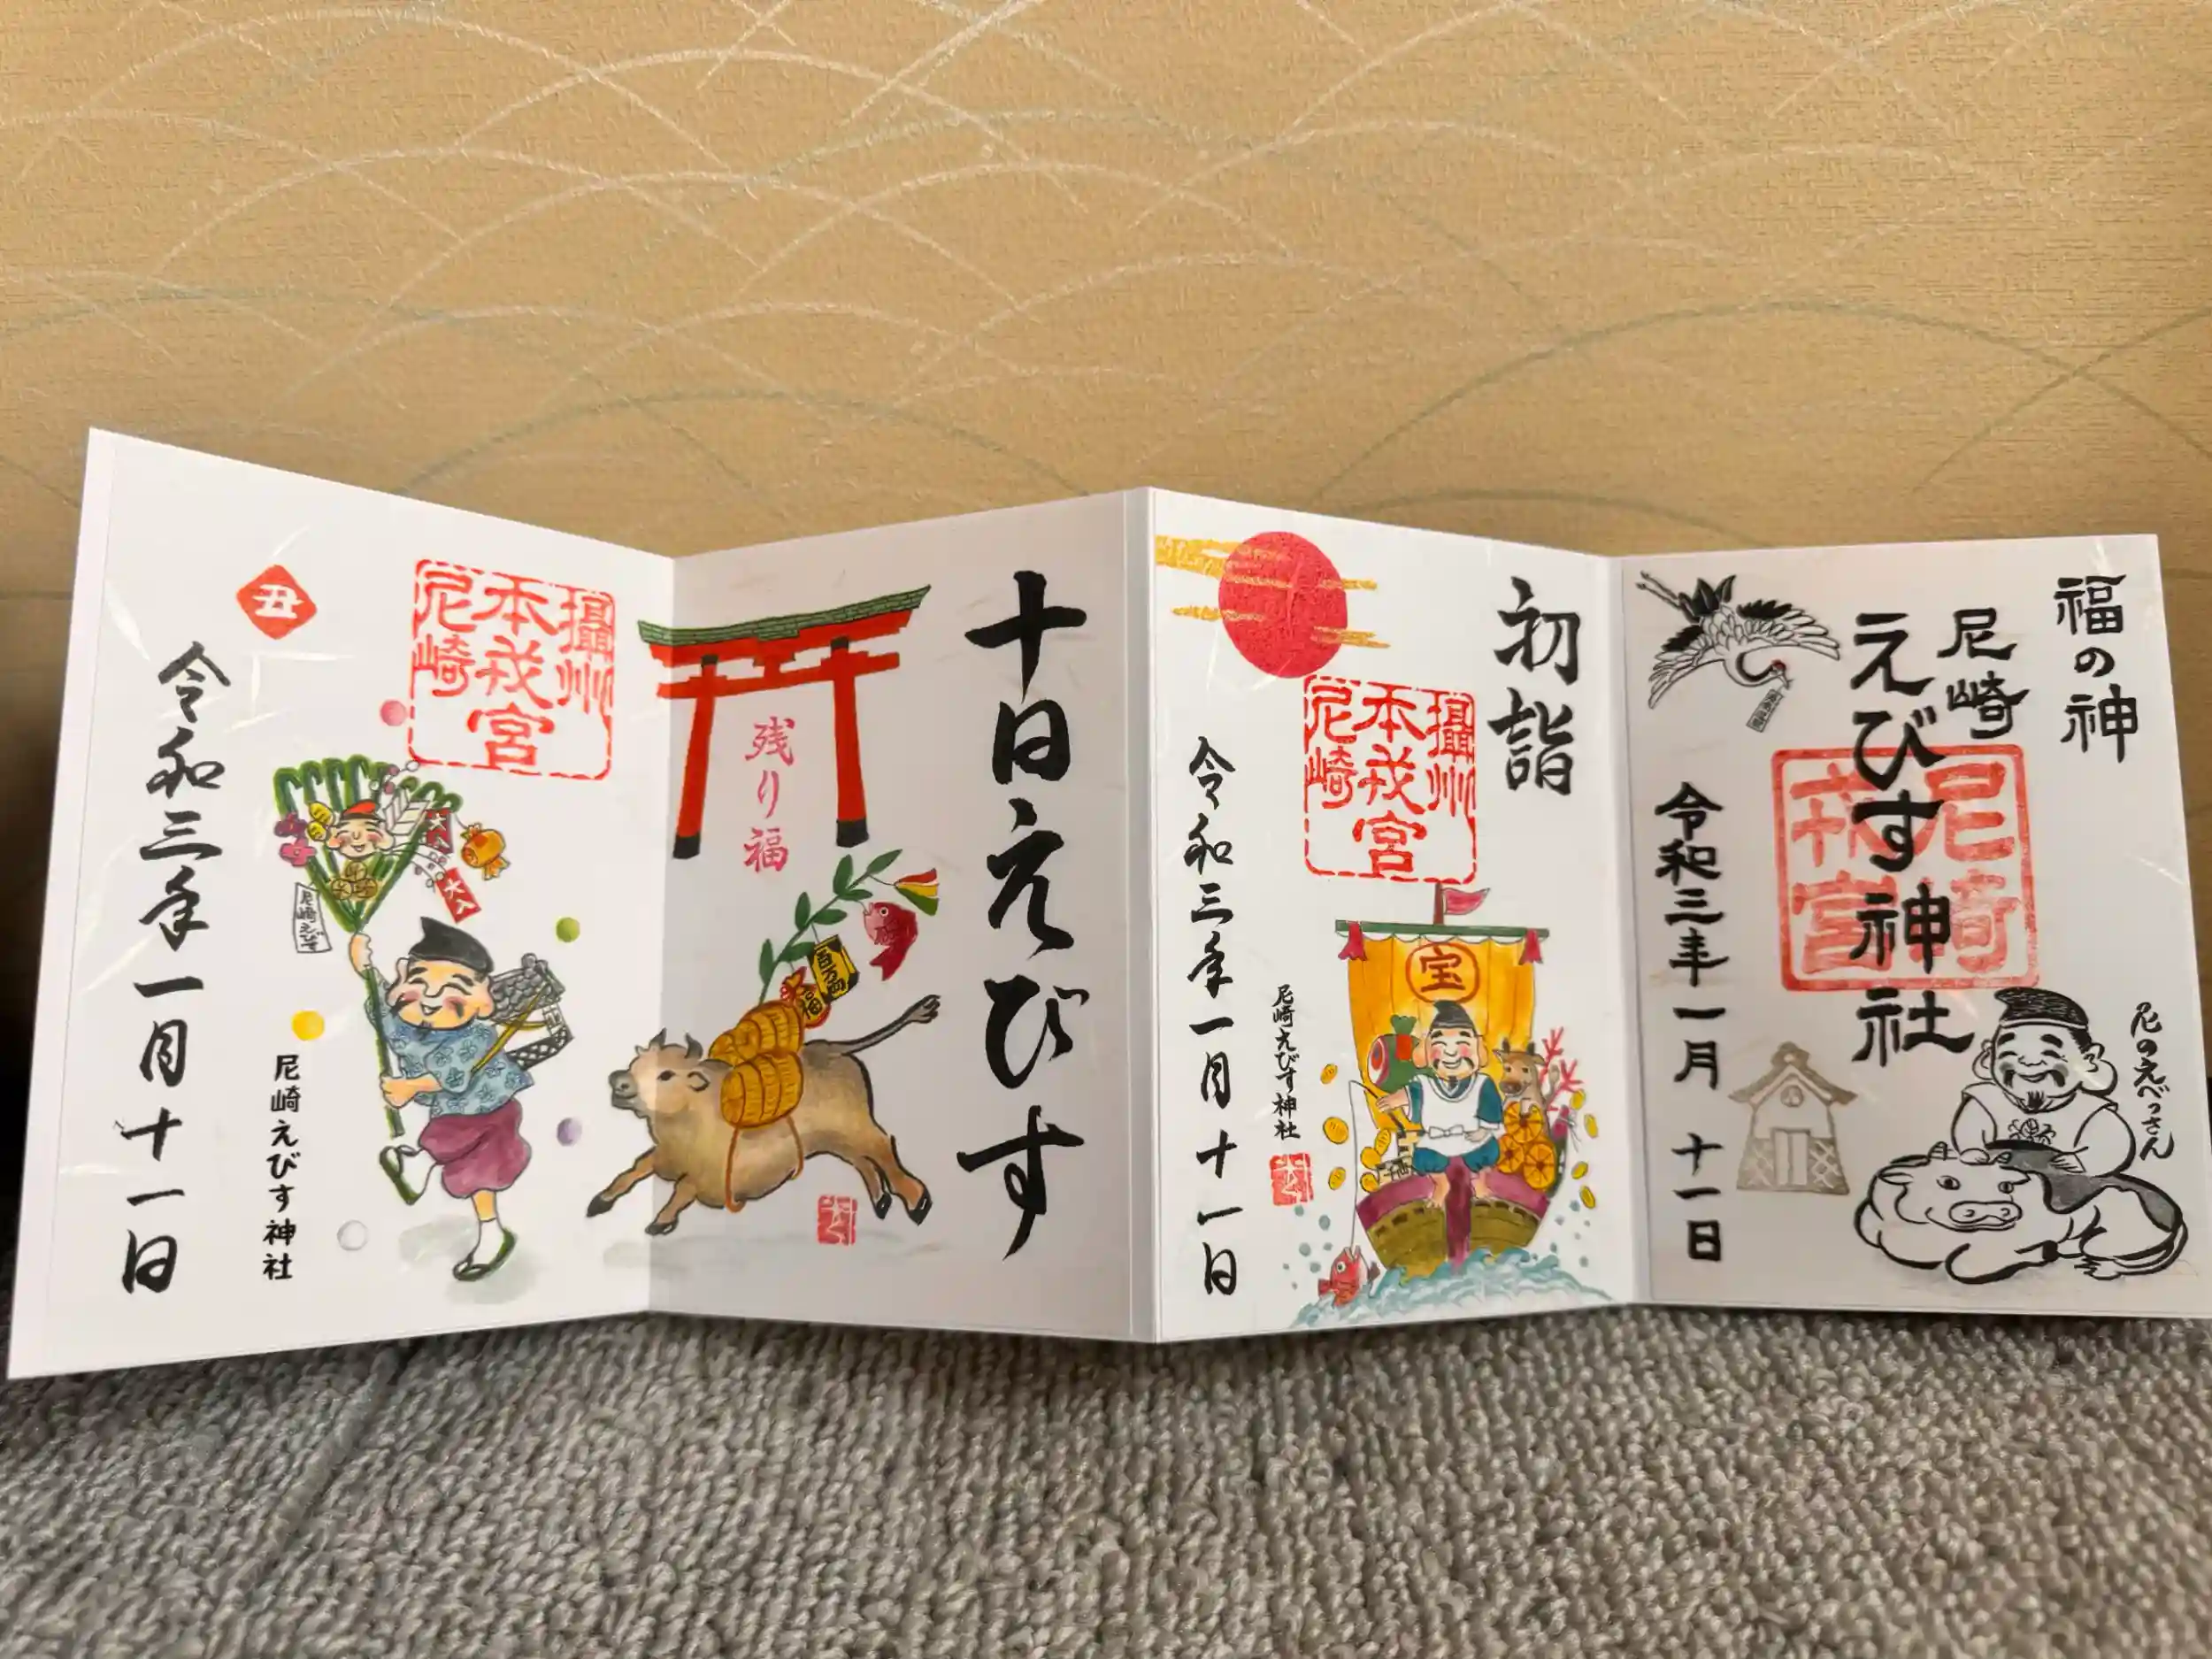 福の神
尼崎
えびす神社
尼崎
戎宮
令和三年一月十一日
尼のえべっさん
初詣
攝州
本戎宮
尼崎
宝
令和三年一月十一日
尼崎えびす神社
十日えびす
残り福
百万両
福
攝州
本戎宮
尼崎
丑
大入
尼崎えびす
尼崎えびす神社
令和三年一月十一日